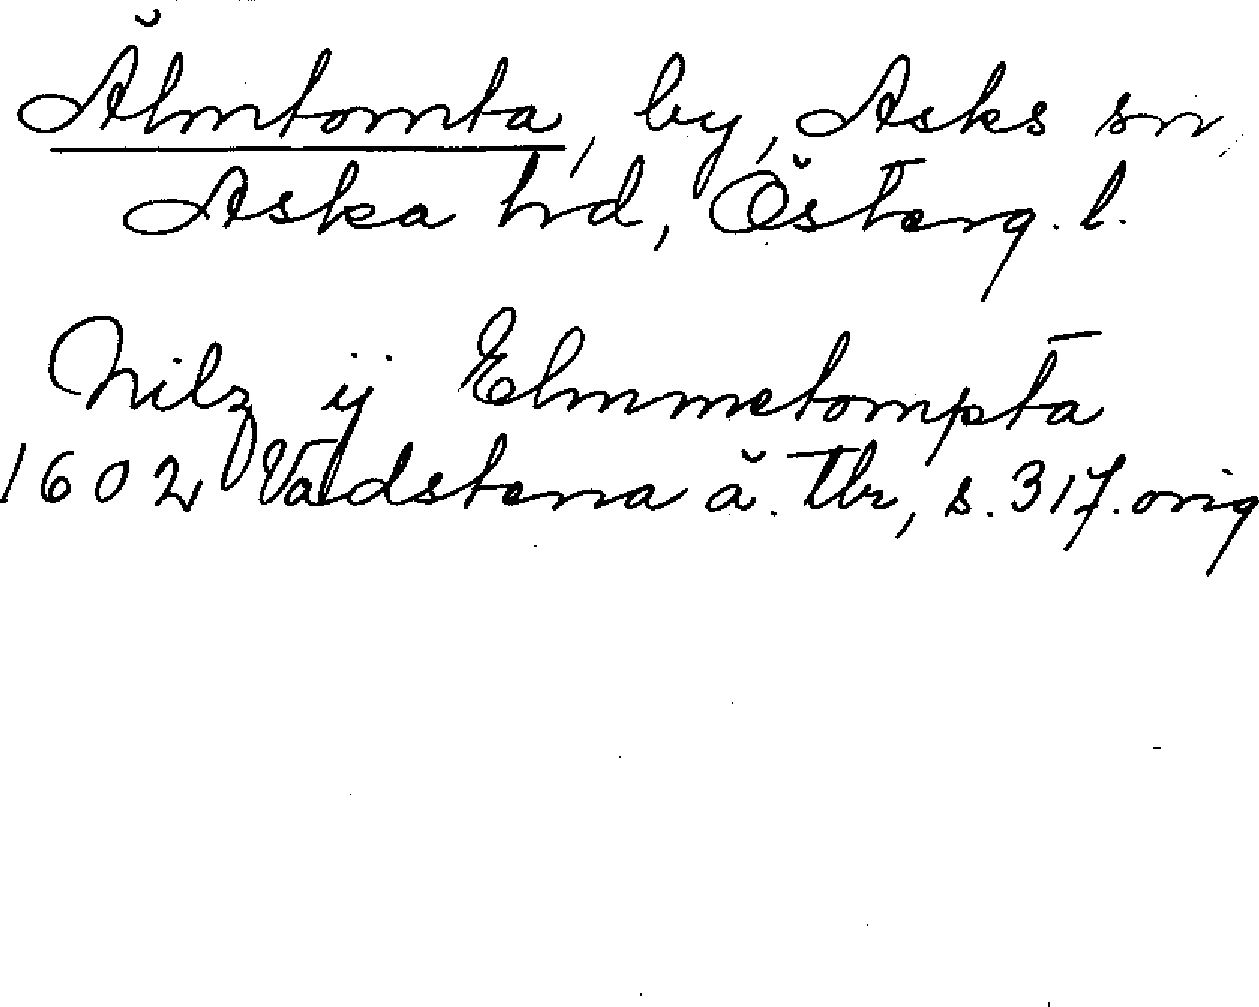 Älmtomta, by, Asks sn,
Aska hd, Österg. l.
Nilz ij Elmmetompta
1602 Vadstena ä. Tbr, s. 317. orig